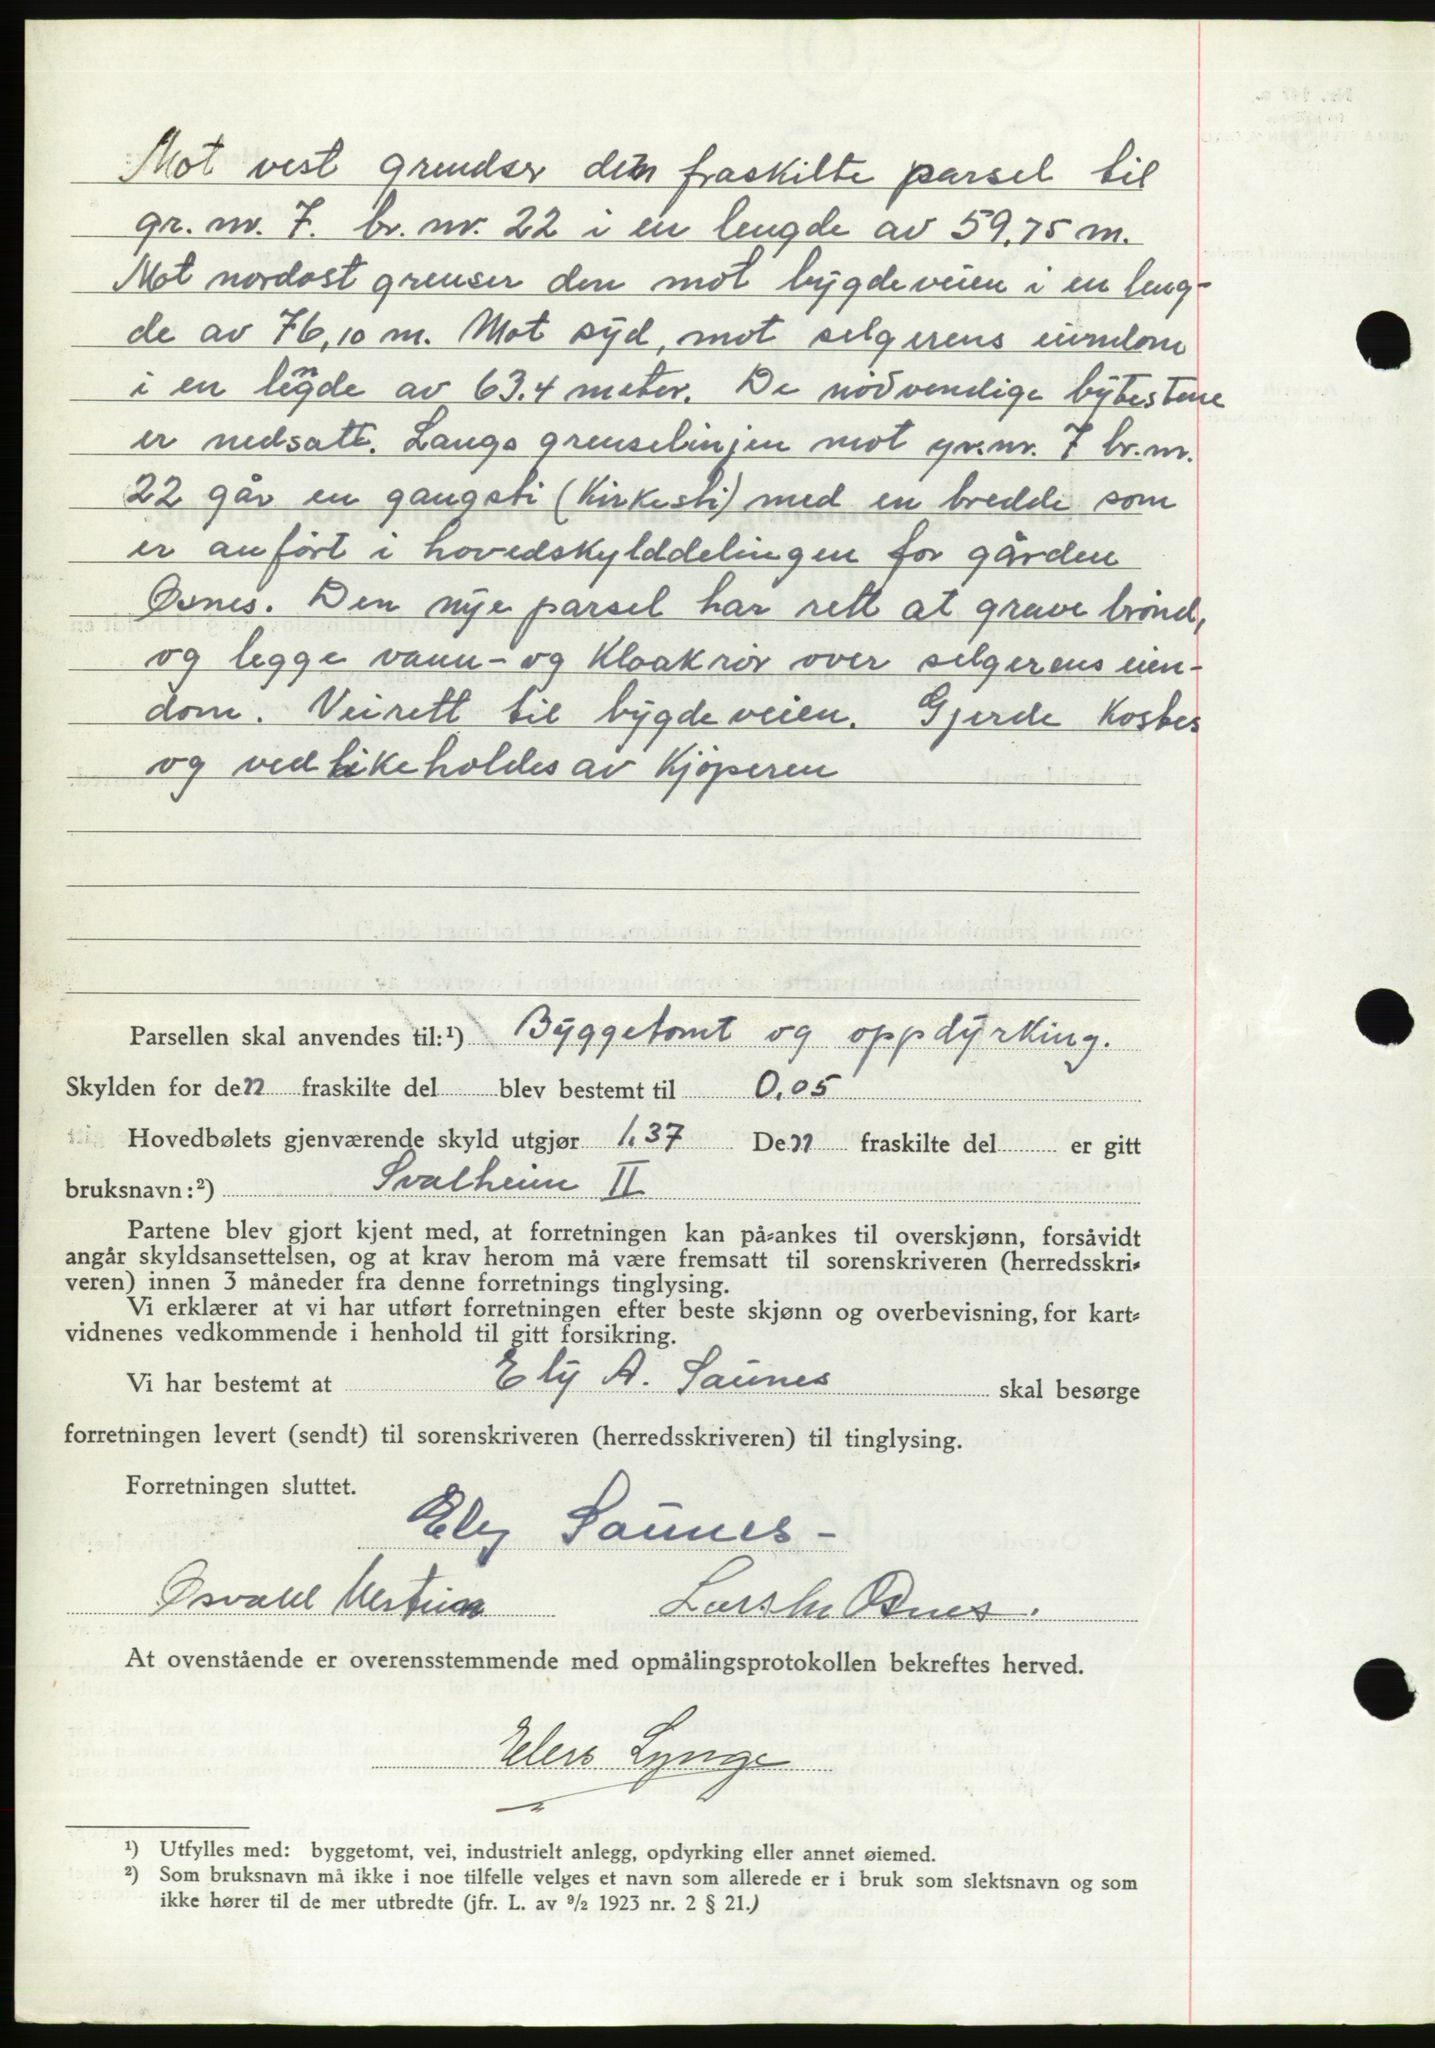 Mot vest grendser den fraskilte parsel til
gr. nr. 7. br. nr. 22 i en lengde av 59,75 m.
Mot nordost grenser den mot bygdeveien i en leng-
de av 76,10 m. Mot syd, mot selgerens eiendom
i en lengde av 63.4 meter. De nödvendige bytestene
er nedsatt. Langs grenselinjen mot gr.nr. 7 br.nr.
22 går en gangsti (Kirkesti) med en bredde som
er anfört i hovedskylddelingen for gården
Osnes. Den nye parsel har rett at grave brönd,
og legge vann- og Kloakrör over selgerens eien-
dom. Veirett til bygdeveien. Gjerde Kostes
og vedlikeholdes av Kjöperen
Parsellen skal anvendes til:¹) Byggetomt og oppdyrking.
Skylden for den fraskilte del blev bestemt til 0,05
Hovedbølets gjenværende skyld utgjør 1.37 Den fraskilte del er gitt
bruksnavn:²) Svalheim II
Partene blev gjort kjent med, at forretningen kan på-ankes til overskjønn, forsåvidt
angår skyldsansettelsen, og at krav herom må være fremsatt til sorenskriveren (herredsskri-
veren) innen 3 måneder fra denne forretnings tinglysing.
Vi erklærer at vi har utført forretningen efter beste skjønn og overbevisning, for kart-
vidnenes vedkommende i henhold til gitt forsikring.
Vi har bestemt at Ely A. Saunes skal besørge
forretningen levert (sendt) til sorenskriveren (herredsskriveren) til tinglysing.
Forretningen sluttet.
Ely Saunes -
Osvald Lars Osnes.
At ovenstående er overensstemmende med opmålingsprotokollen bekreftes herved.
Elers Lynge
¹) Utfylles med: byggetomt, vei, industrielt anlegg, opdyrking eller annet øiemed.
²) Som bruksnavn må ikke i noe tilfelle velges et navn som allerede er i bruk som slektsnavn og som
ikke hører til de mer utbredte (jfr. L. av ⁹/₂ 1923 nr. 2 § 21.)